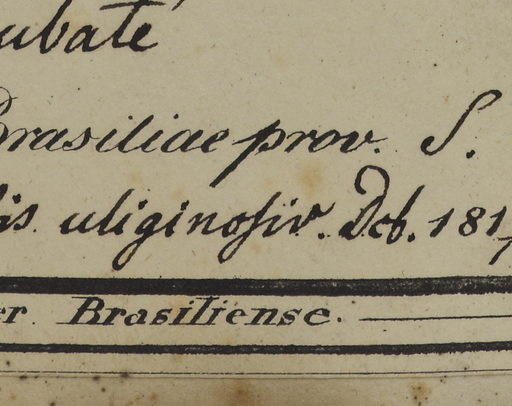 ubaté
Brasiliae prov. S.
is uliginosis. Dcb. 1817
er Brasiliense.